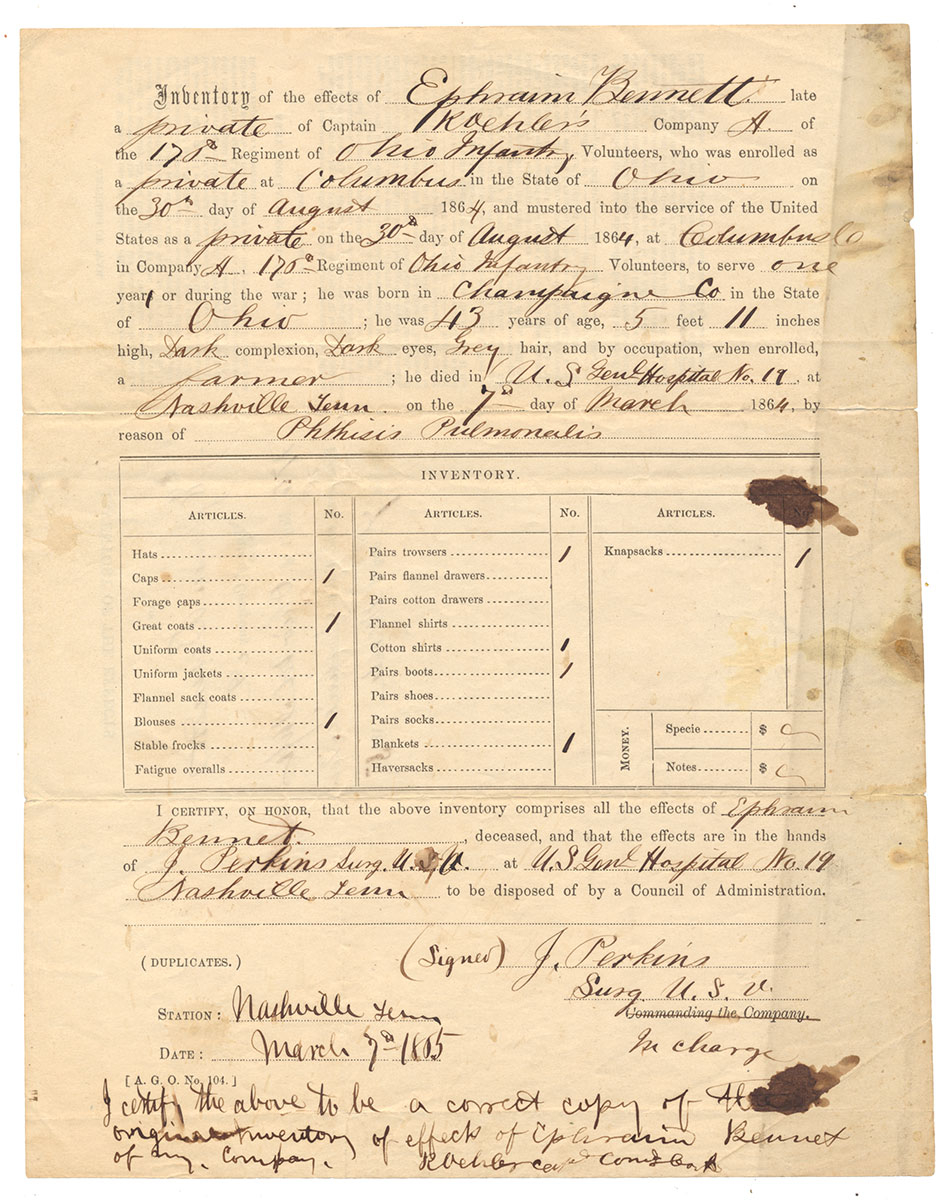 Inventory of the effects of Ephraim Bennett late
a private of Captain Koehler's Company A. of
the 178th Regiment of Ohio Infantry Volunteers, who was enrolled as
a private at Columbus in the State of Ohio on
the 30th day of August 1864, and mustered into the service of the United
States as a private on the 30th day of August 1864, at Columbus O
in Company A, 178th Regiment of Ohio Infantry Volunteers, to serve one
year or during the war; he was born in Champaigne Co in the State
of Ohio; he was 43 years of age, 5 feet 11 inches
high, Dark complexion, Dark eyes, Grey hair, and by occupation, when enrolled,
a farmer; he died in U. S Genl Hospital No. 19, at
Nashville Tenn. on the 7th day of March 1864, by
reason of Phthisis Pulmonalis
INVENTORY.
ARTICLES. No. ARTICLES. No. ARTICLES.
Hats Pairs trowsers 1 Knapsacks 1
Caps 1 Pairs flannel drawers
Forage caps Pairs cotton drawers
Great coats 1 Flannel shirts
Uniform coats Cotton shirts 1
Uniform jackets Pairs boots 1
Flannel sack coats Pairs shoes
Blouses 1 Pairs socks
Stable frocks Blankets 1
Fatigue overalls Haversacks
MONEY.
Specie $
Notes $
I CERTIFY, ON HONOR, that the above inventory comprises all the effects of Ephraim
Bennet, deceased, and that the effects are in the hands
of J. Perkins Surg. U.S.V. at U S Genl Hospital No. 19
Nashville Tenn to be disposed of by a Council of Administration.
(DUPLICATES.) (Signed) J. Perkins
Surg. U. S. V.
STATION: Nashville Tenn Commanding the Company.
DATE: March 7th 1865 In charge
[A. G. O. No. 104.]
I certify the above to be a correct copy of the
original inventory of effects of Ephraim Bennet
of my Company. Koehler Capt Comd Co A